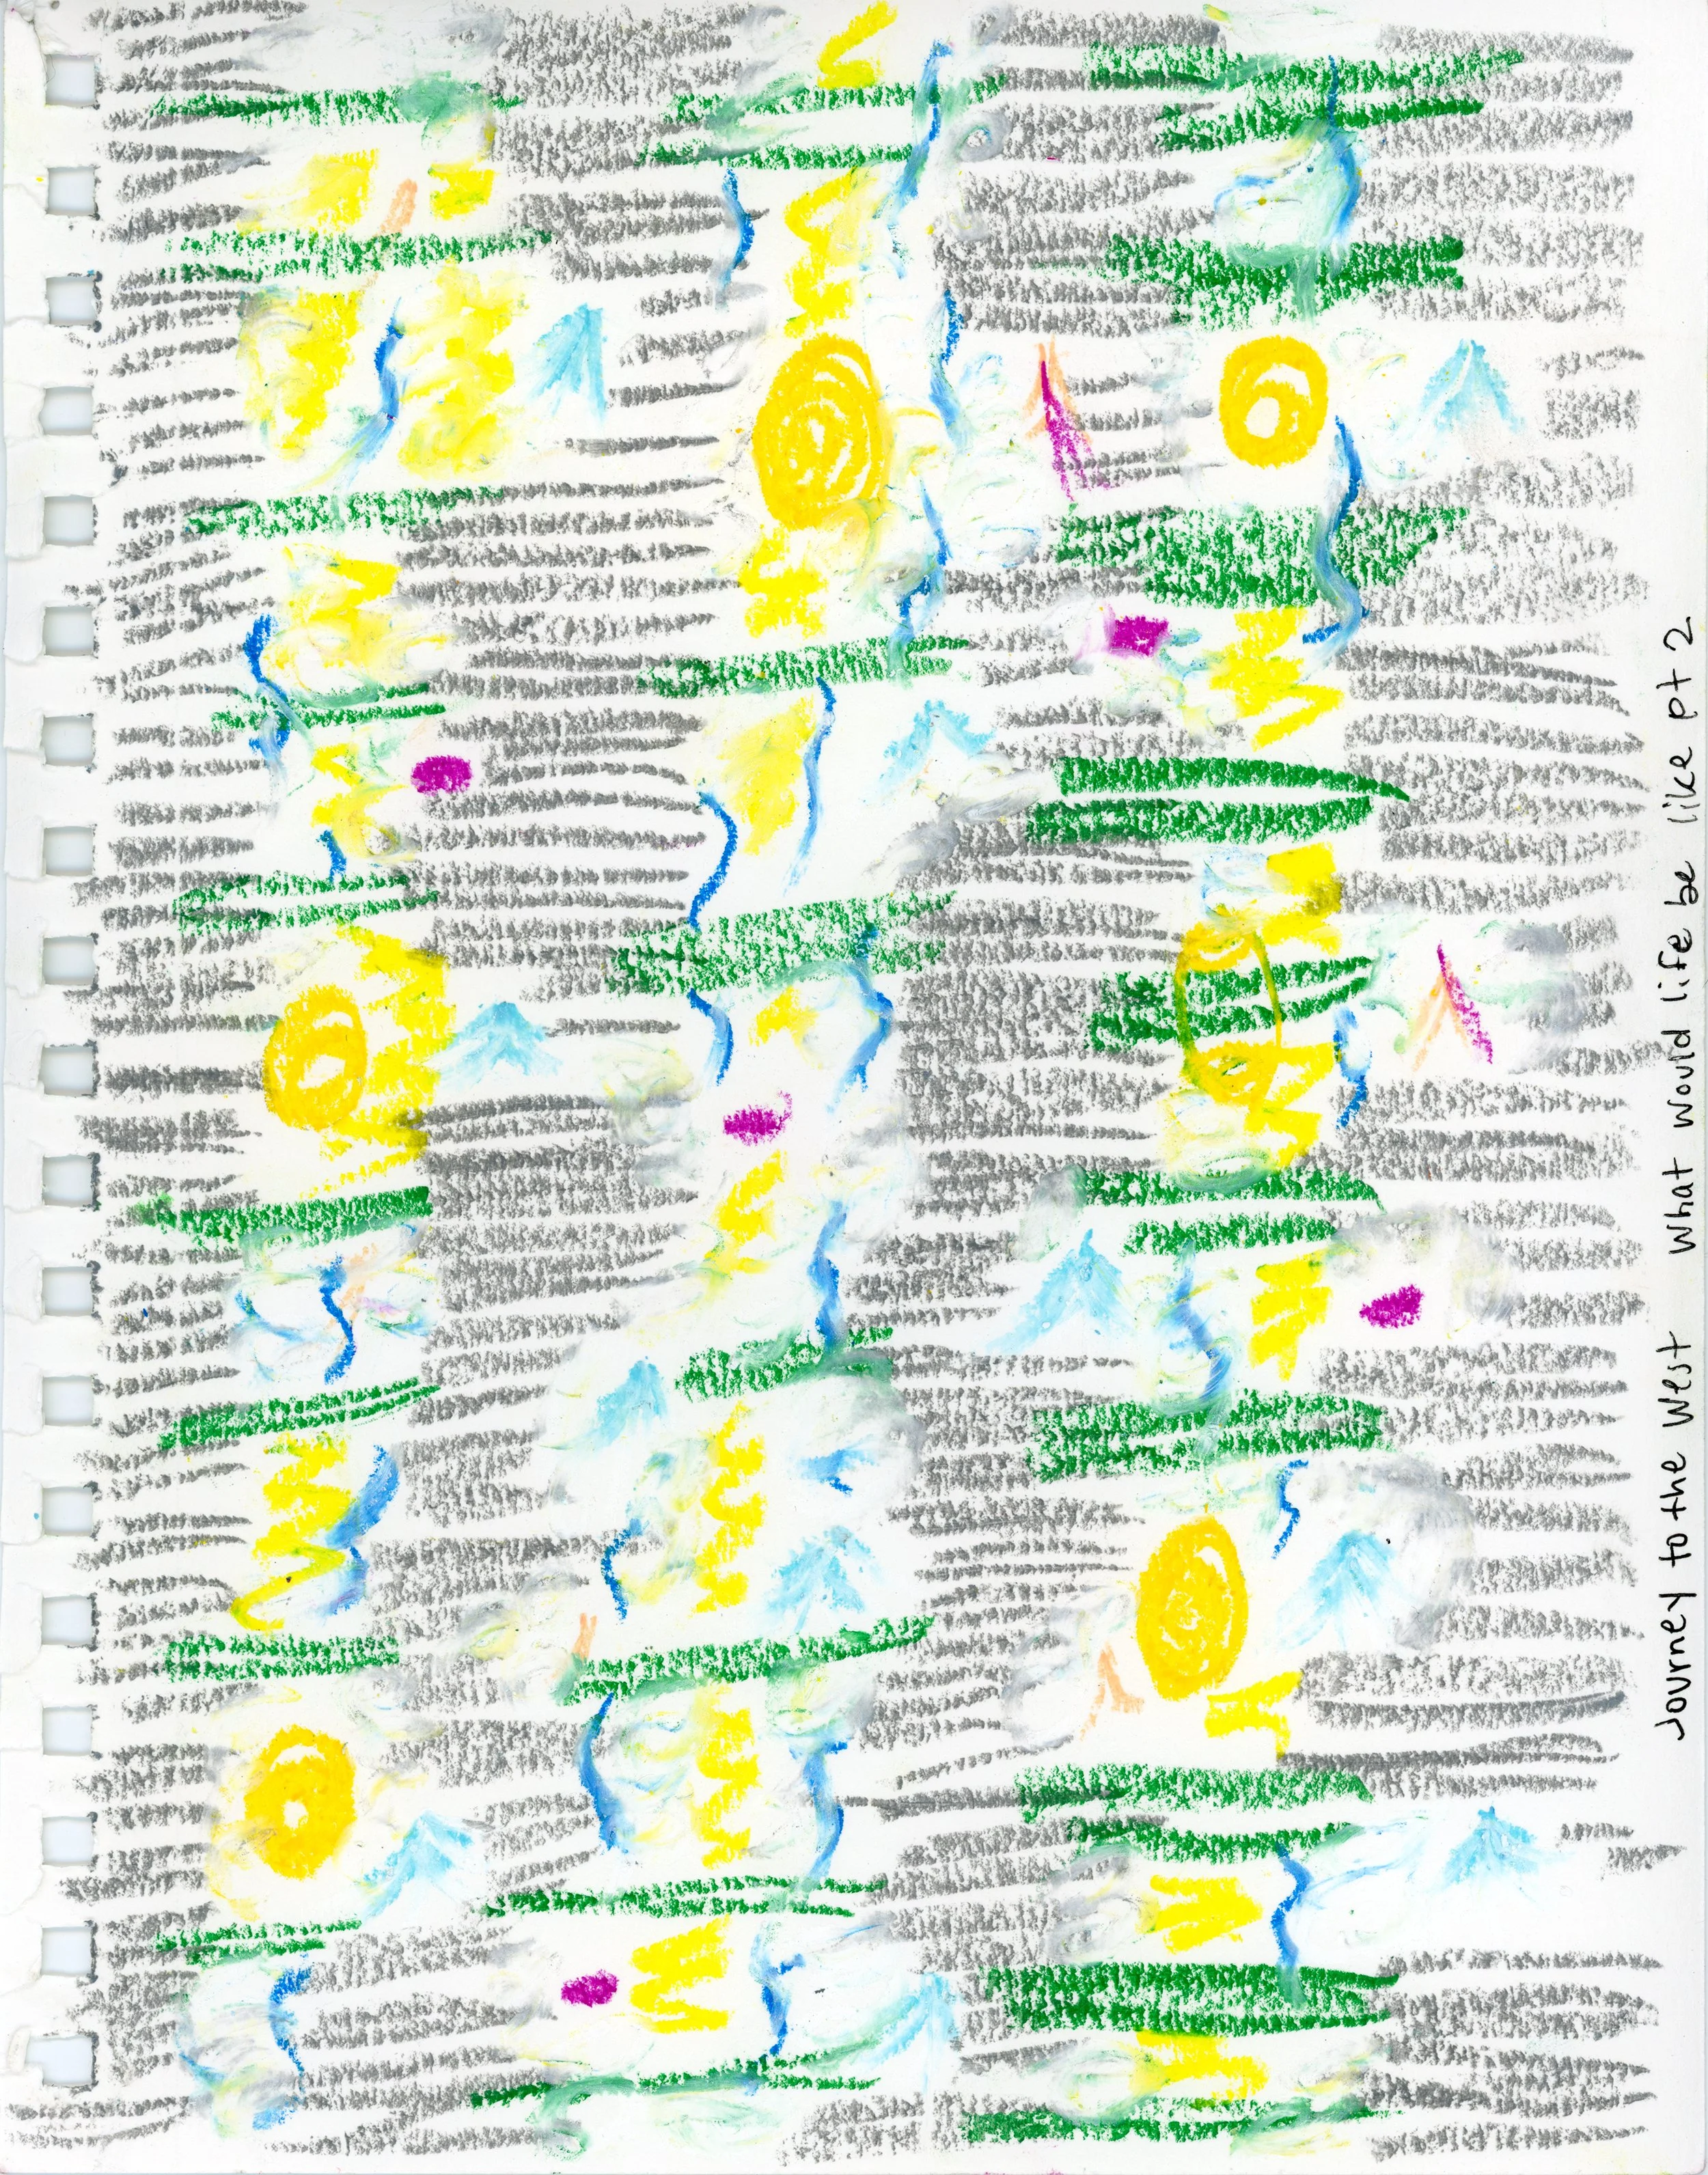 Journey to the West What would life be like pt 2